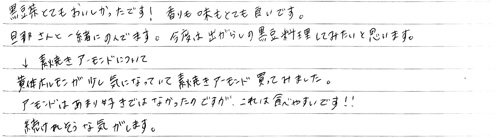 黒豆茶とてもおいしかったです! 香りも味もとても良いです。
旦那さんと一緒にのんでます。今度は出がらしの黒豆料理してみたいと思います。
↓ 素焼きアーモンドについて
黄体ホルモンが少し気になっていて素焼きアーモンド買ってみました。
アーモンドはあまり好きではなかったのですが、これは食べやすいです!!
続けれそうな気がします。